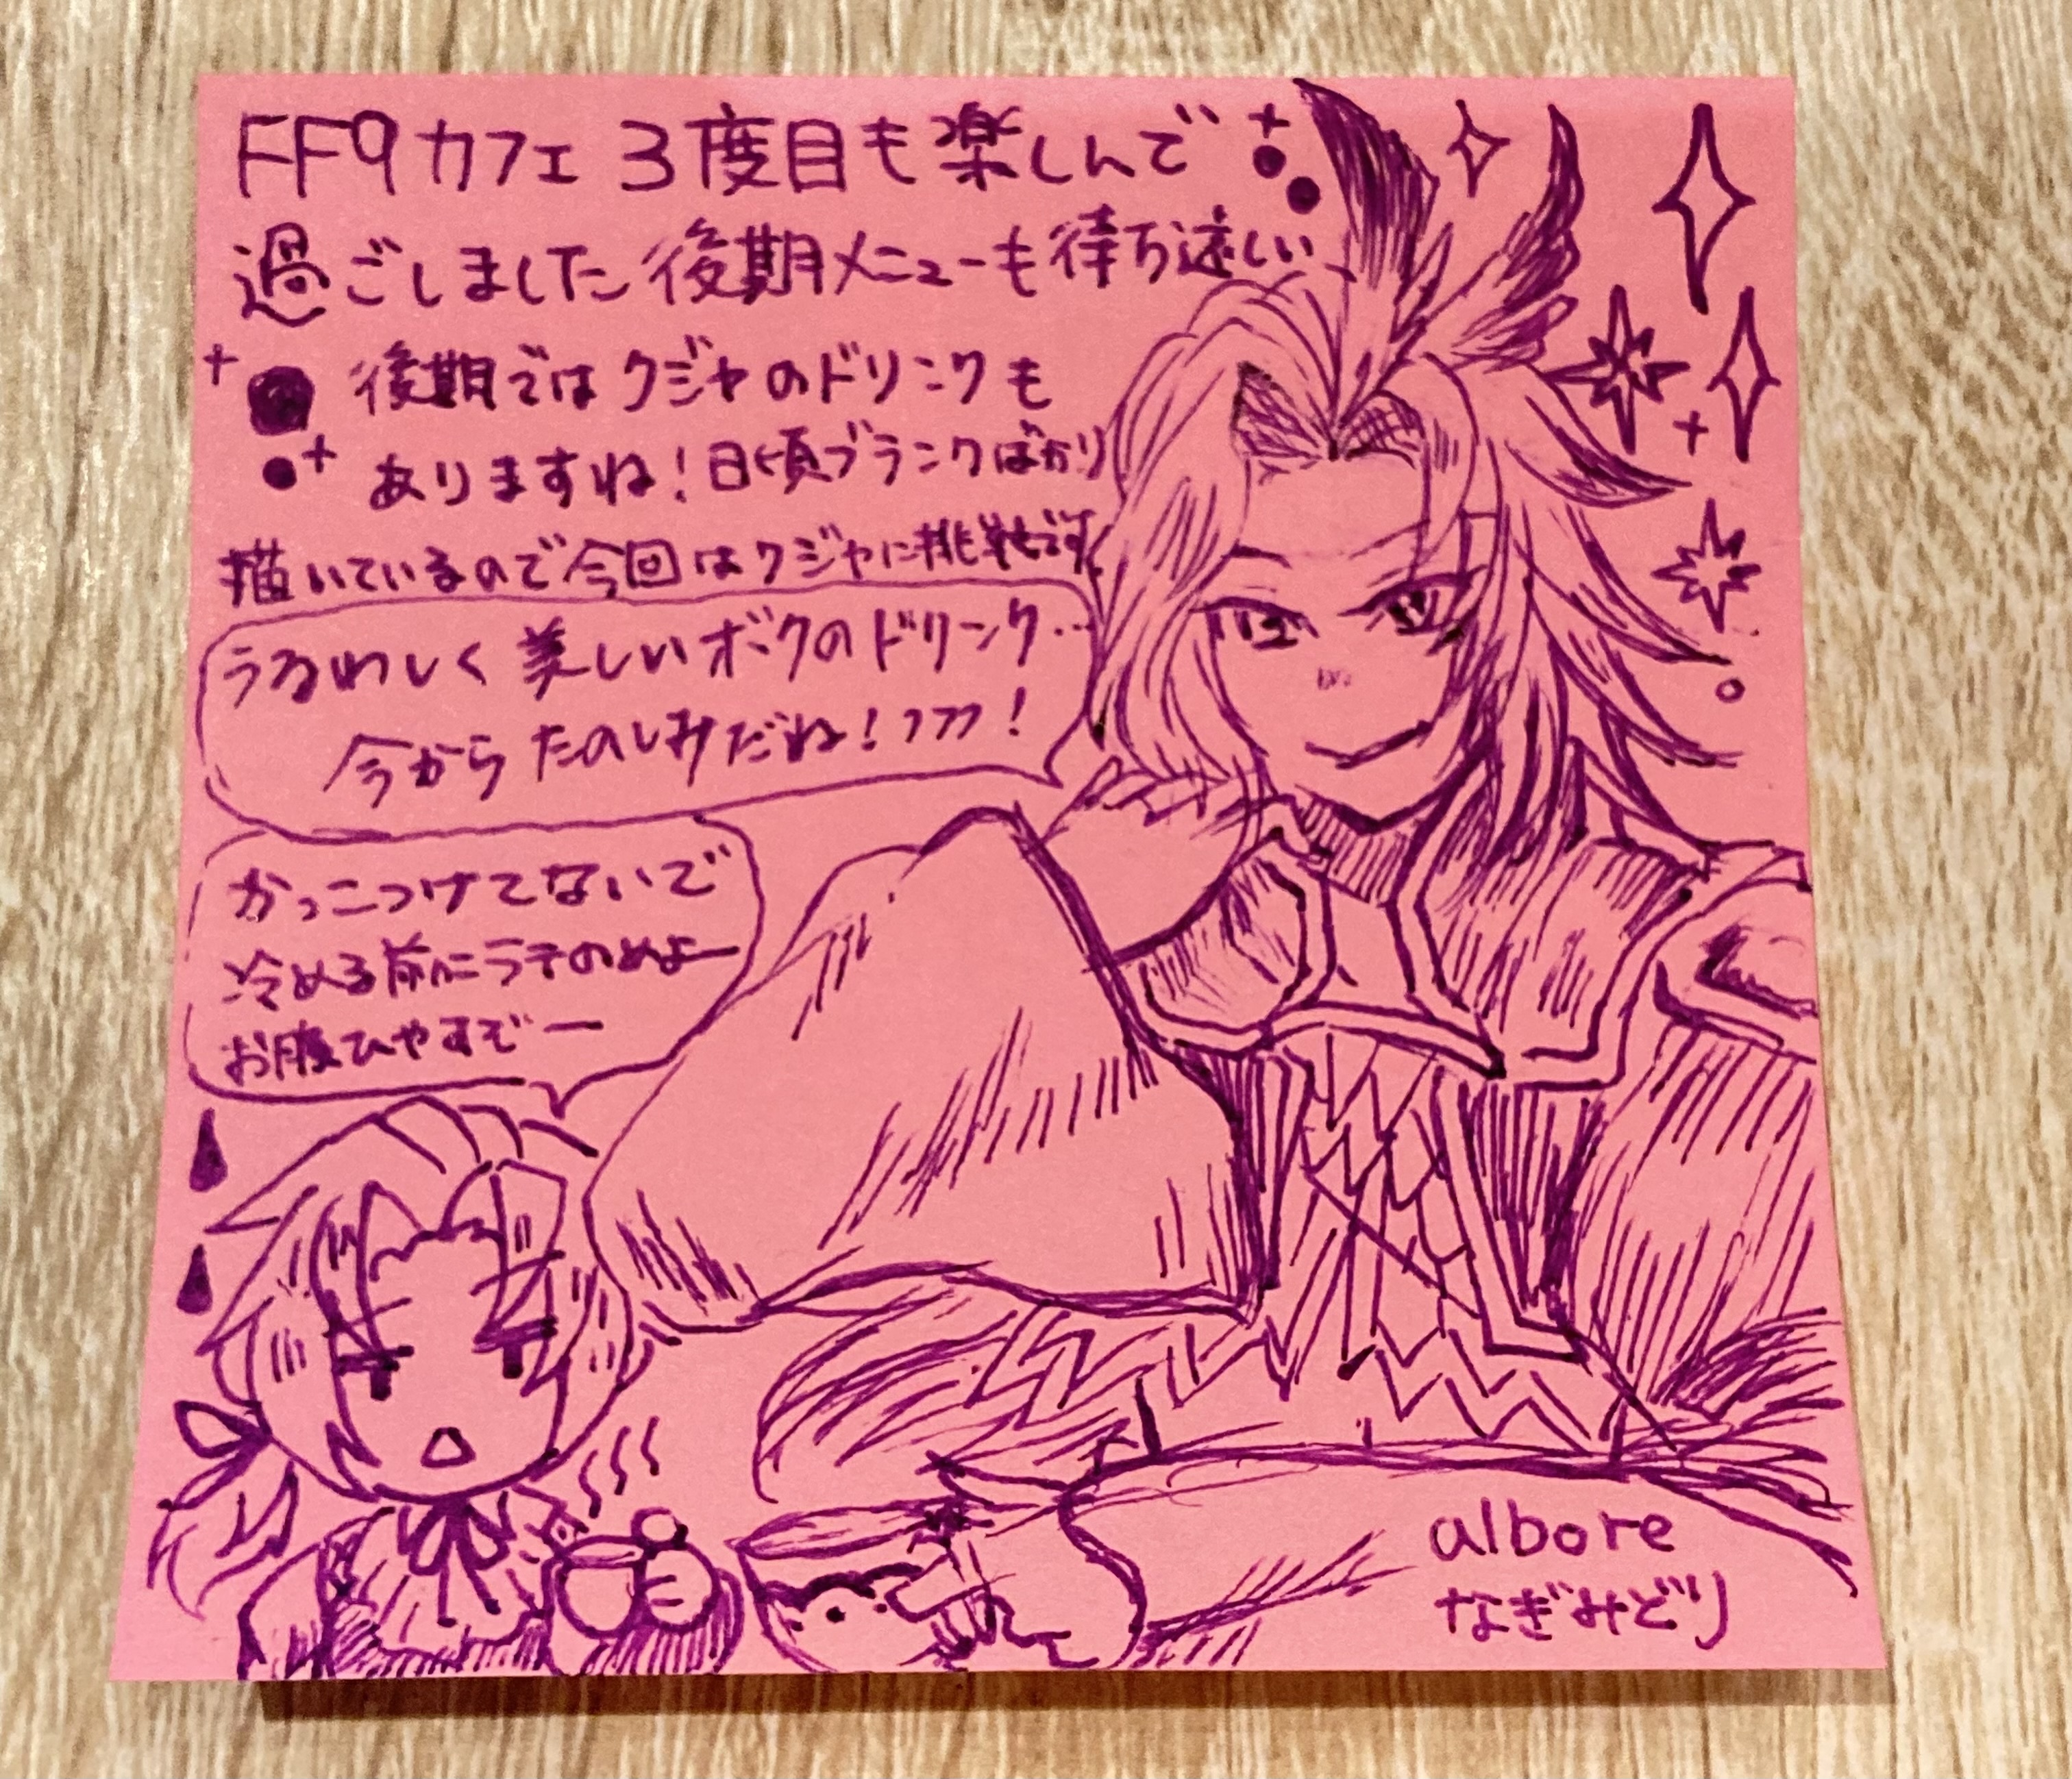 FF9カフェ 3度目も楽しんで
過ごしました 後期メニューも待ち遠しい
後期ではクジャのドリンクも
ありますね!日頃ブランクばかり
描いているので今回はクジャに挑戦です
うるわしく美しいボクのドリンク…
今からたのしみだね!フフフ!
かっこつけてないで
冷める前にラテのめよー
お腹ひやすぞー
albore
なぎみどり